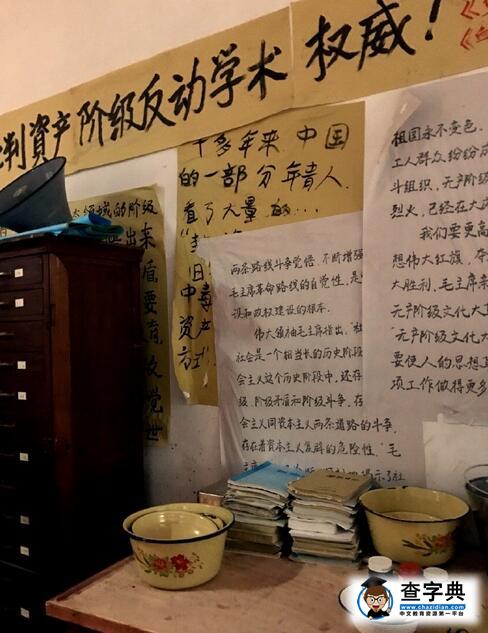 判資产阶级反动学术权威！
十多年来中国
的一部分年青人
看了大量的…
祖国永不变色.
工人群众纷纷成
斗组织,无产阶
烈火,已经在大
我们要更高
想伟大红旗,
大胜利,毛主席亲
无产阶级文化大
"无产阶级文化大
要使人的思想
项工作做得更多
两条路线斗争觉悟,不断增强
毛主席革命路线的自觉性,是
设和政权建设的根本.
伟大领袖毛主席指出,"社
社会是一个相当长的历史阶段
会主义这个历史阶段中,还存
级、阶级矛盾和阶级斗争,存
会主义同资本主义两条道路的斗争,
存在着资本主义复辟的危险性."毛
领域的阶级
查字典
www.chazidian.com
中文教育资源第一平台